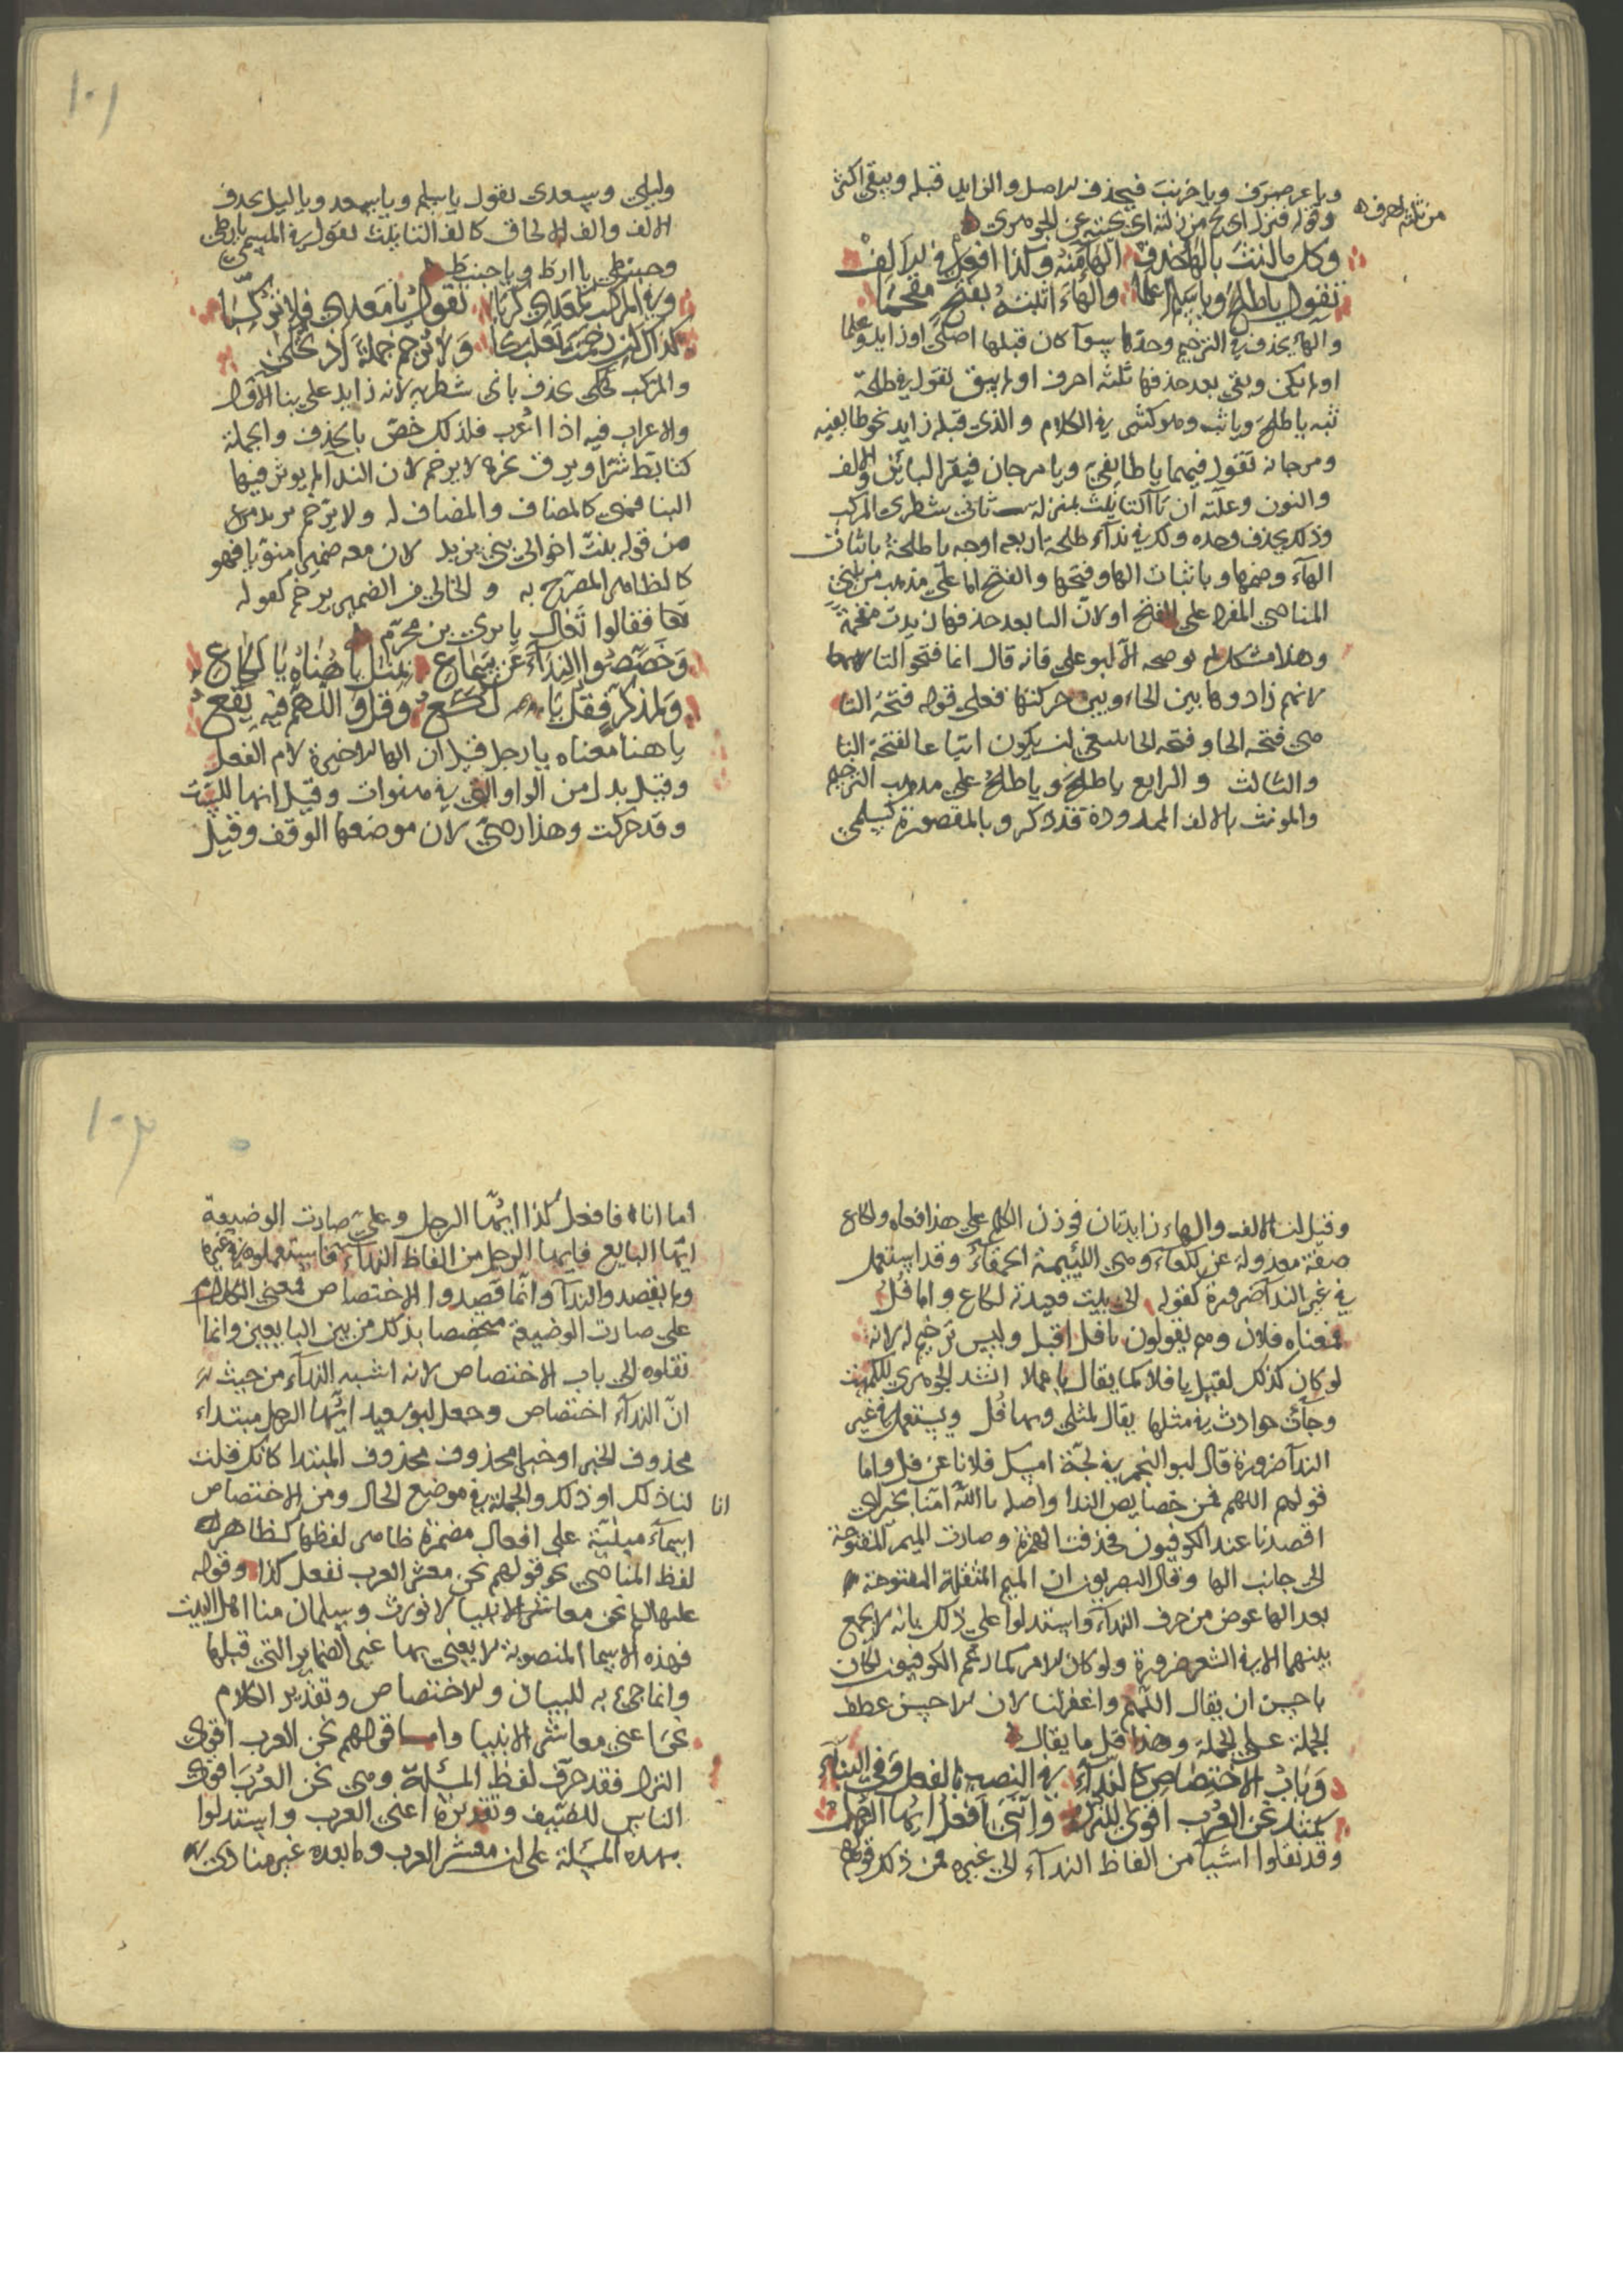 ويا عرصرف ويا خرنب فيحذف الاصل والزايد قبله ويبقى اكثر
من ثلثه احرف
وقوله فنزل اى نح من زلته اى نحيته عن الجوهرى
وكل ما انث بالها حذف الهآ منه وكذا افعل فى ذا الف
تقول يا طلح ويا سلم اعلما والهاء اثبته بفتح مقحما
والهاء يحذف فى الترخيم وحدها سوآ كان قبلها اصلى او زايد وعلما
او لم يكن وبقى بعد حذفها ثلثه احرف او لم يبق تقول فى طلحة
ثبه يا طلح ويا ثب وهو كثير فى الكلام والذى قبله زايد نحو طايفيه
ومرجانه تقول فيهما يا طايفى ويا مرجان فيقر اليائين والالف
والنون وعلته ان تآ التانيث بمنزلة ثانى شطرى المركب
وذلك يحذف وحده ولك فى ندآء طلحة اربعه اوجه يا طلحة باثبات
الهآء وضمها وباثبات الها وفتحها والفتح اما على مذهب من يبنى
المنادى المفرد على الفتح او لان التا بعد حذفها زيدت مقحمة
وهذا مشكل لم يوضحه الا ابو على فانه قال انما فتحوا التا
لانهم زادوها بين الحاء وبين حركتها فعلى قوله فتحة التا
هى فتحه الحا وفتحه الحا ينبغى ان يكون اتباعا لفتحة التا
والثالث والرابع يا طلح ويا طلح على مذهب الترخيم
والمونث بالالف الممدودة قد ذكر وبالمقصورة كسلمى
وليلى وسعدى تقول يا سلم ويا سعد ويا ليل بحذف
الالف والف الالحاق كالف التانيث تقول فى المسمى بارطى
وحبنطى يا ارط ويا حبنط
وفى المركب معدى كربا تقول يا معدى فلا تركبا
كذاك ان رخمت بعلبكا ولا ترخم جملة اذ تحكى
والمركب يحكى بحذف ثانى شطريه لانه زايد على بنا الاول
والاعراب فيه اذا اعرب فلذلك خص بالحذف والجملة
كتابط شرا وبرق نحره لا يرخم لان الندا لم يوثر فيها
البنا فهى كالمضاف والمضاف له ولا يرخم يزيد
من قوله بنت اخوالى بنى يزيد لان معه ضميرا منويا فهو
كالظاهر المصرح به والخالى من الضمير يرخم كقوله
فقالوا تعال يا يزى بن مخرم
وخصصوا الندآء عن سماع بمثل يا هناه يا لكاع
ولمذكر فقل يا لكع وفل واللهم فيه يقع
يا هنا معناه يا رجل قيل ان الها الاخيرة لام الفعل
وقيل بدل من الواو التى فى هنوات وقيل انها للسكت
وقد حركت وهذا ردى لان موضعها الوقف وقيل
وقيل ان الالف والهاء زايدتان فوزن الكلمه على هذا فعاه ولكاع
صفة معدولة عن لكعآء وهى اللئيمة الحمقاء وقد استعمل
فى غير الندآ ضرورة كقوله الى بيت قعيدته لكاع واما فل
فمعناه فلان وهم يقولون يا فل اقبل وليس ترخيم له لانه
لو كان كذلك لقيل يا فلا كما يقال يا عملا انشد الجوهرى للكميت
وجآت حوادث فى مثلها يقال لمثلى ويها فل ويستعمل فى غير
الندآ ضرورة قال ابو النجم فى لجة امسك فلانا عن فل واما
قولهم اللهم فمن خصايص الندا واصله يا الله آمنا بخير اى
اقصدنا عند الكوفيون فحذفت الهمزة وصارت الميم المفتوحة
الى جانب الها وقال البصريون ان الميم المثقلة المفتوحة
بعد الها عوض من حرف الندآء واستدلوا على ذلك بانه لا يجمع
بينهما الا فى الشعر ضرورة ولو كان الامر كما زعم الكوفيون لكان
باحسن ان يقال اللهم واغفر لنا لان الاحسن عطف
الجملة على الجملة وهذا قل ما يقال
وباب الاختصاص كالندآء فى النصب بالفعل وفى البنآء
كمثل نحن العرب اقوى للنزل واننى افعل ايها الرجل
وقد نقلوا اشيا من الفاظ الندآء الى غيره فمن ذلك قولهم
اما انا فافعل كذا ايها الرجل وعلى صارت الوضيعة
ايها البايع فايها الرجل من الفاظ الندآء فاستعملوه فى غيره
ولم يقصدوا الندآ وانما قصدوا الاختصاص لمعنى الكلام
على صارت الوضيعة مخصصا بذلك من بين البايعين وانما
نقلوه الى باب الاختصاص لانه اشبه الندآء من حيث
ان الندآء اختصاص وجعل ابو سعيد ايها الرجل مبتداء
محذوف الخبر او خبرا محذوف المبتدا كانك قلت
انا
انا ذلك او ذلك والجملة فى موضع الحال ومن الاختصاص
اسمآء مبنية على افعال مضمرة ظاهر لفظها كظاهر
لفظ المنادى نحو قولهم نحن معشر العرب نفعل كذا وقوله
عليه السلم نحن معاشر الانبيا لا نورث وسلمان منا اهل البيت
فهذه الاسما المنصوبة لا يعنى بها غير الضماير التى قبلها
وانما جئ به للبيان والاختصاص وتقدير الكلام
نحن اعنى معاشر الانبيا واما قولهم نحن العرب اقوى
النزل فقد حرف لفظ المسئلة وهى نحن العرب اقرى
الناس للضيف وتقديره اعنى العرب واستدلوا
بهذه المسئلة على ان معشر العرب وما بعده غير منادى